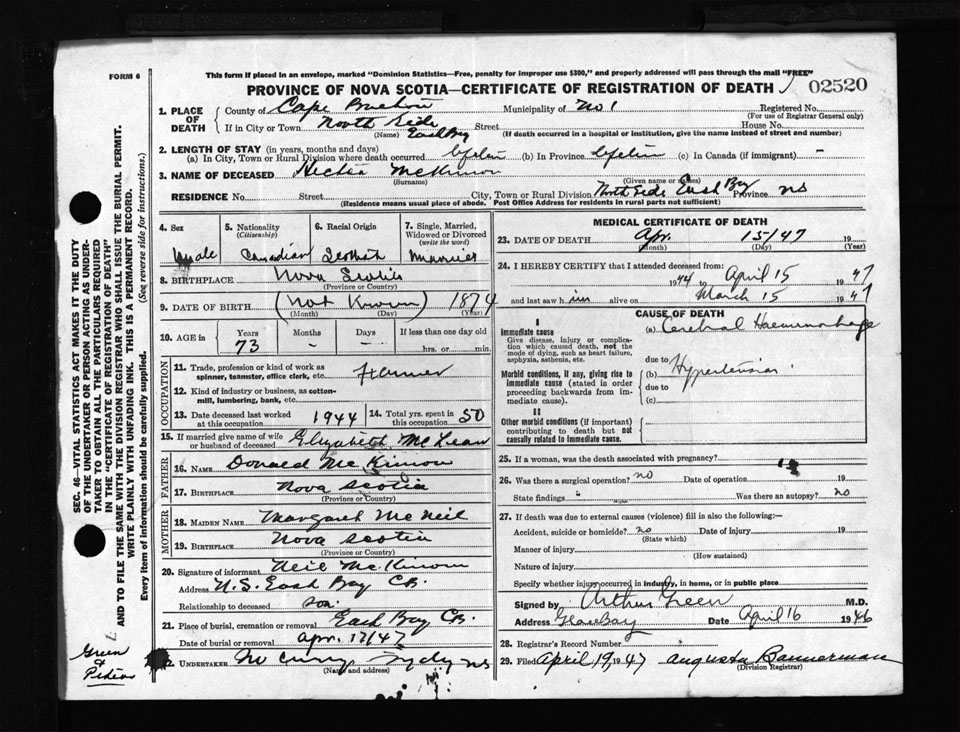 FORM 6
This form if placed in an envelope, marked "Dominion Statistics—Free, penalty for improper use $300," and properly addressed will pass through the mail "FREE"
PROVINCE OF NOVA SCOTIA—CERTIFICATE OF REGISTRATION OF DEATH
02520
1. PLACE OF DEATH
County of Cape Breton Municipality of No 1 Registered No.
(For use of Registrar General only)
If in City or Town North Side East Bay Street House No.
(Name) (If death occurred in a hospital or institution, give the name instead of street and number)
2. LENGTH OF STAY (in years, months and days)
(a) In City, Town or Rural Division where death occurred (b) In Province (c) In Canada (if immigrant) –
3. NAME OF DECEASED McKinnon
(Surname) (Given name or names)
RESIDENCE No. Street City, Town or Rural Division North Side East Bay Province NS
(Residence means usual place of abode. Post Office Address for residents in rural parts not sufficient)
4. Sex
male
5. Nationality
(Citizenship)
Canadian
6. Racial Origin
Scottish
7. Single, Married, Widowed or Divorced
(write the word)
Married
8. BIRTHPLACE Nova Scotia
(Province or Country)
9. DATE OF BIRTH (Not Known) 1874
(Month) (Day) (Year)
10. AGE in
Years
73
Months
–
Days
–
If less than one day old
hrs. or min.
OCCUPATION
11. Trade, profession or kind of work as spinner, teamster, office clerk, etc. Farmer
12. Kind of industry or business, as cotton-mill, lumbering, bank, etc.
13. Date deceased last worked at this occupation 1944
14. Total yrs. spent in this occupation 50
15. If married give name of wife or husband of deceased Elizabeth McLean
FATHER
16. NAME Donald McKinnon
17. BIRTHPLACE Nova Scotia
(Province or Country)
MOTHER
18. MAIDEN NAME Margaret McNeil
19. BIRTHPLACE Nova Scotia
(Province or Country)
20. Signature of informant Neil McKinnon
Address N.S. East Bay CB.
Relationship to deceased son.
21. Place of burial, cremation or removal East Bay CB.
Date of burial or removal Apr. 17/47
22. UNDERTAKER
(Name and address)
MEDICAL CERTIFICATE OF DEATH
23. DATE OF DEATH Apr. 15/47 19
(Month) (Day) (Year)
24. I HEREBY CERTIFY that I attended deceased from
1944 to April 15 1947
and last saw him alive on March 15 1947
CAUSE OF DEATH
I
Immediate cause
Give disease, injury or complication which caused death, not the mode of dying, such as heart failure, asphyxia, asthenia, etc.
(a) Cerebral Haemorrhage
due to
Morbid conditions, if any, giving rise to immediate cause (stated in order proceeding backwards from immediate cause).
(b) Hypertension
due to
(c)
II
Other morbid conditions (if important) contributing to death but not causally related to immediate cause.
25. If a woman, was the death associated with pregnancy?
26. Was there a surgical operation? no Date of operation 19
State findings Was there an autopsy? No
27. If death was due to external causes (violence) fill in also the following:—
Accident, suicide or homicide? no Date of injury 19
(State which)
Manner of injury
(How sustained)
Nature of injury
Specify whether injury occurred in industry, in home, or in public place
Signed by Arthur Green M.D.
Address Glace Bay Date April 16 1946
28. Registrar's Record Number
29. Filed April 19 1947 Augusta Bannerman
(Division Registrar)
SEC. 46—VITAL STATISTICS ACT MAKES IT THE DUTY
OF THE UNDERTAKER OR PERSON ACTING AS UNDER-
TAKER TO OBTAIN ALL THE PARTICULARS REQUIRED
IN THE "CERTIFICATE OF REGISTRATION OF DEATH"
AND TO FILE THE SAME WITH THE DIVISION REGISTRAR WHO SHALL ISSUE THE BURIAL PERMIT.
WRITE PLAINLY WITH UNFADING INK. THIS IS A PERMANENT RECORD.
Every item of information should be carefully supplied. (See reverse side for instructions.)
Green